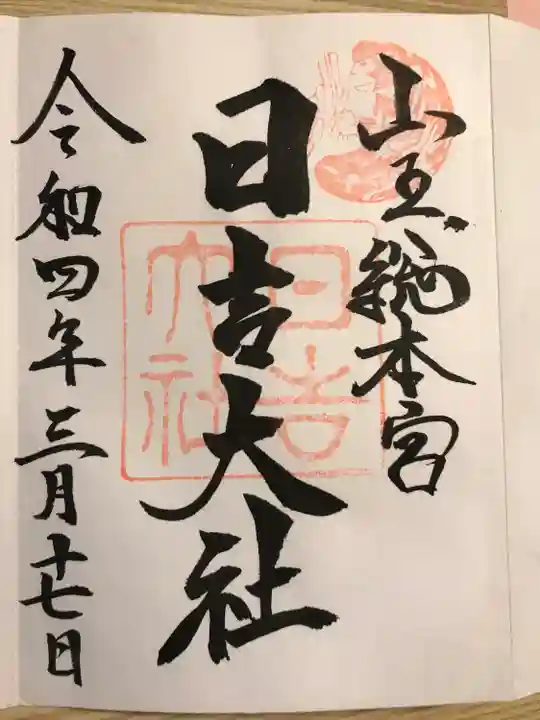 山王総本宮
日吉大社
日吉大社
令和四年三月十七日